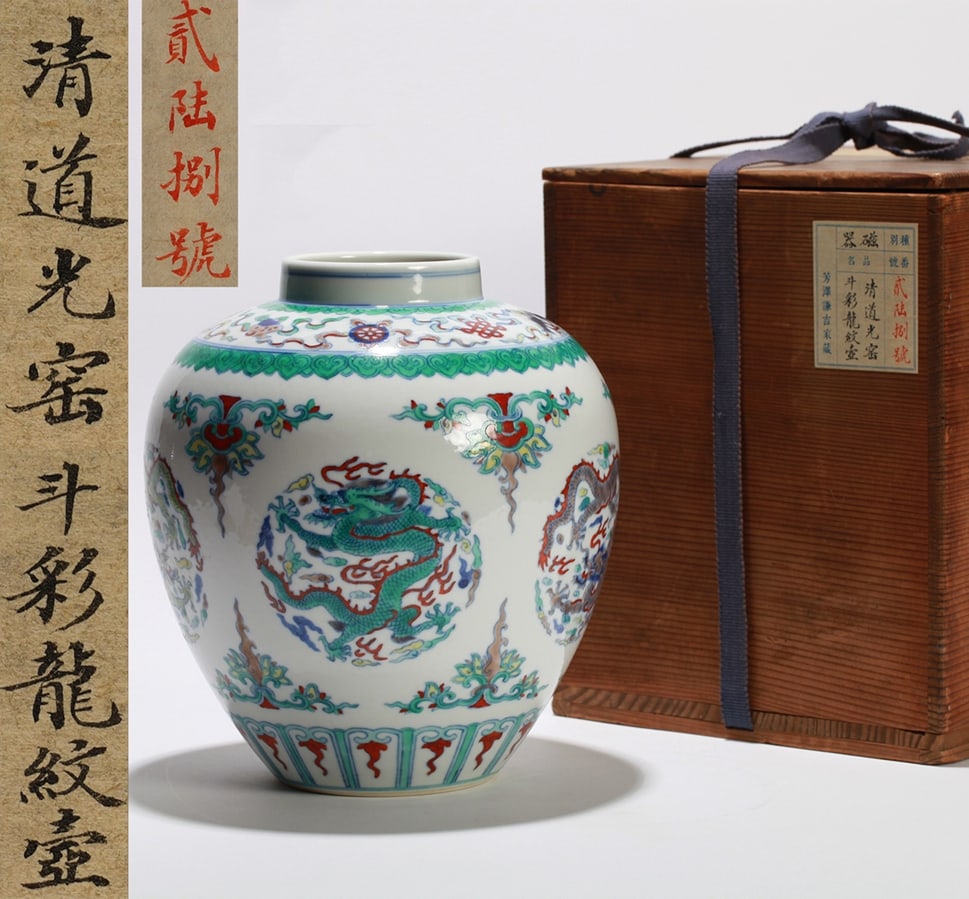 清道光窑斗彩龍紋壺
貳陸捌號
種別 磁器
番號 品名
貳陸捌號
清道光窑
斗彩龍紋壺
芳澤謙吉家藏